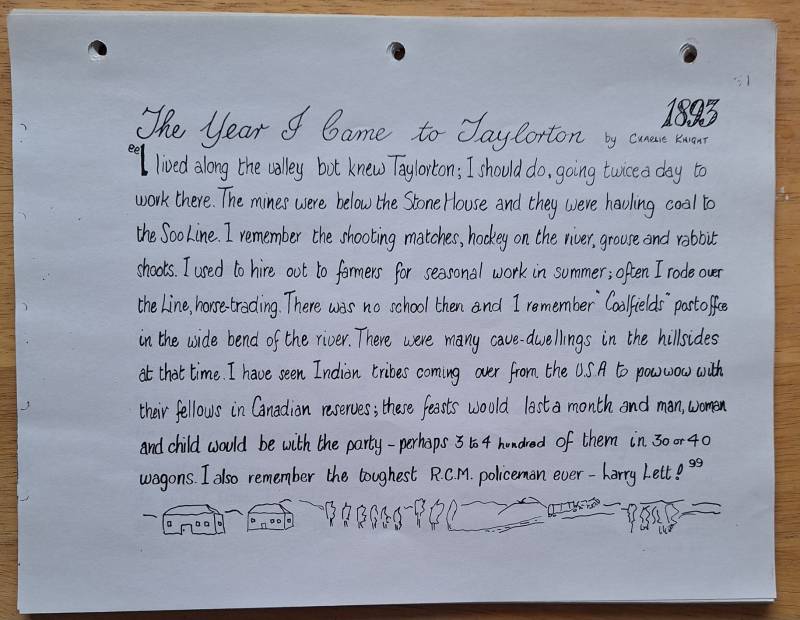 1893
The Year I Came to Taylorton by CHARLIE KNIGHT
“I lived along the valley but knew Taylorton; I should do, going twice a day to
work there. The mines were below the Stone House and they were hauling coal to
the Soo Line. I remember the shooting matches, hockey on the river, grouse and rabbit
shoots. I used to hire out to farmers for seasonal work in summer; often I rode over
the Line, horse-trading. There was no school then and I remember "Coalfields" postoffce
in the wide bend of the river. There were many cave-dwellings in the hillsides
at that time. I have seen Indian tribes coming over from the U.S.A to powwow with
their fellows in Canadian reserves; these feasts would last a month and man, woman
and child would be with the party - perhaps 3 to 4 hundred of them in 30 or 40
wagons. I also remember the toughest R.C.M. policeman ever - Larry Lett!”